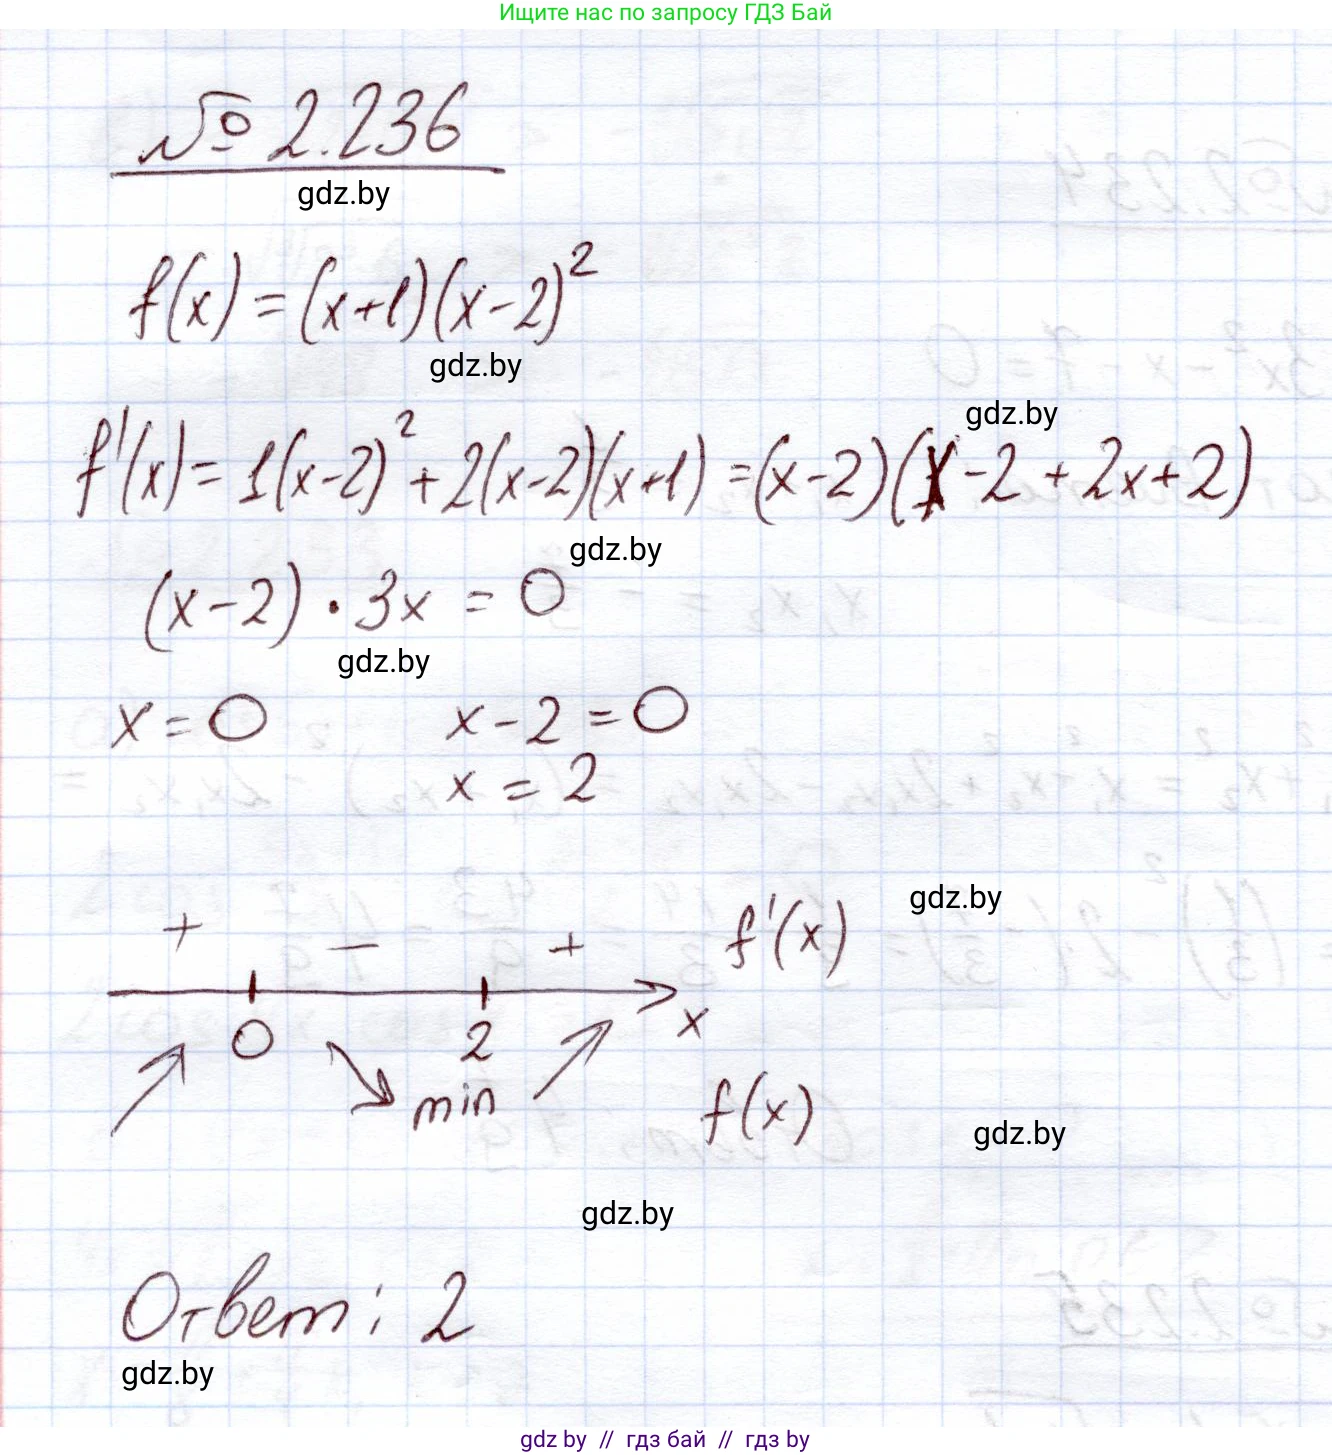 Ищите нас по запросу ГДЗ Бай
№ 2.236
gdz.by
f(x) = (x+1)(x-2)²
gdz.by
gdz.by
f'(x) = 1(x-2)² + 2(x-2)(x+1) = (x-2)(x-2+2x+2)
gdz.by
(x-2) · 3x = 0
gdz.by
x = 0 x-2 = 0
x = 2
gdz.by
+ − + f'(x)
0 2 x
min f(x)
gdz.by
gdz.by
Ответ: 2
gdz.by
gdz by // гдз бай // гдз by